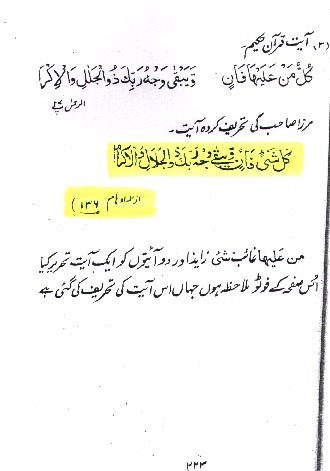 (۳) آیت قرآن حکیم۔
كُلُّ مَنْ عَلَيْهَا فَانٍ وَيَبْقٰى وَجْهُ رَبِّكَ ذُو الْجَلٰلِ وَالْاِكْرَام
الرحمن
مرزا صاحب کی تحریف کردہ آیت۔
كل شئ فان ويبقى وجه ربك ذو الجلال والاكرام
ازالہ اوہام ۱۳۶)
من علیہا غائب شئ زاید اور دو آئیتوں کو ایک آیت تحریر کیا
اُس صفحہ کے فوٹو ملاحظہ ہوں جہاں اس آیت کی تحریف کی گئی ہے
۲۲۳